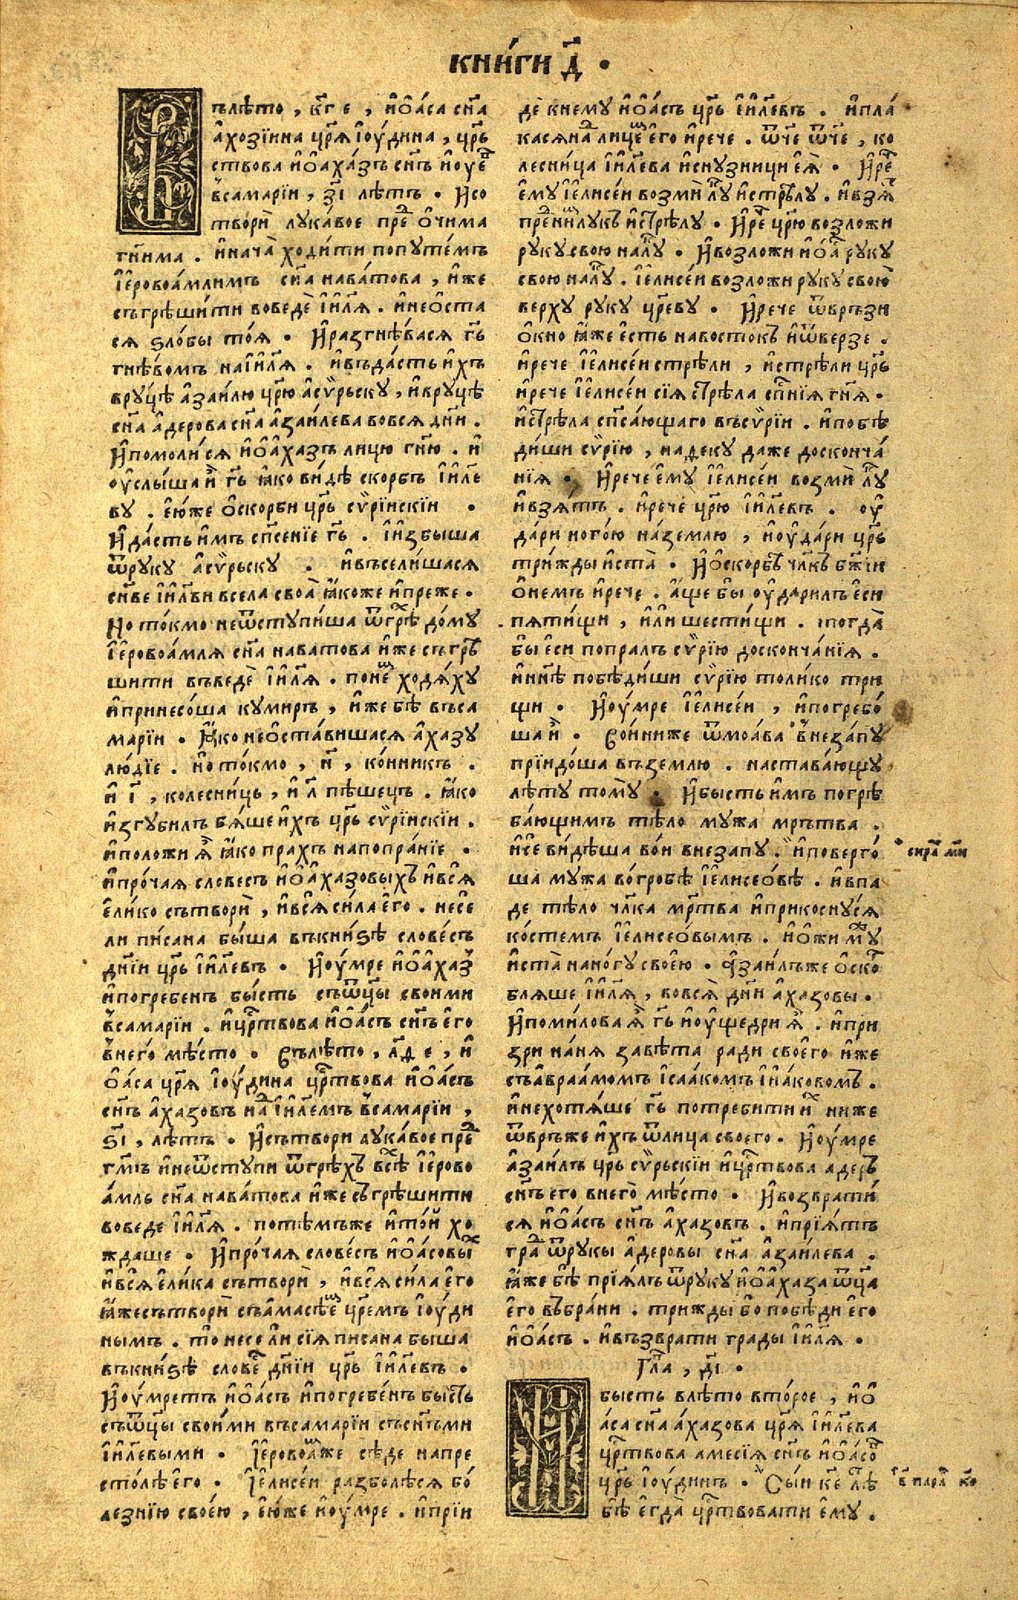 кни́ги д҃ .
Въ лѣто , к҃г е , ио҆а́са сн҃а
а҆хозїина цр҃ѧ їоу́дина , цр҃ь
ствова ио҆аха́зъ сн҃ъ иоуе҆
в̾самарїи , з҃ı лѣтъ . Исо
твори̑ лука́вое пре о҆чима
гн҃има . инача̀ ходи́ти попуте́мъ
їеровоа́млимъ сн҃а нава́това , и҆же
съгрѣши́ти воведѐ ıи҃лѧ . инео҆ста
сѧ ѕло́бы тоѧ́ . И҆разгнѣ́васѧ гь҃
гнѣ́вомъ наıи҃лѧ . ивъда́сть и҆хъ
вру́цѣ азаи́лю цр҃ю асѵ́рьску , ивру́цѣ
сн҃а а҆дерова сн҃а аза́илева вовсѧ дн҃и .
И҆помоли́сѧ ио҆аха́зъ лицю гн҃ю . и҆
оу҆слы́ша и҆ гь҃ ꙗ҆ко ви́дѣ скорбъ ıи҃ле
ву . е҆ю́же о҆скорби цр҃ь сѵ́рїнскїи .
И҆да́сть и҆мъ сп҃се́нїе гь҃ . и҆ızбыша
ѿруку асѵ́рьску . ивъсели́шасѧ
сн҃ве ıи҃лви всела своѧ̀ ꙗ҆коже ипреже .
Но то́кмо неѿступи́ша ѿгрѣ до́му
їеровоа́млѧ сн҃а нава́това и҆же съгрѣ
шити въведѐ ıи҃лѧ . поне ходѧ́ху
ипринесо́ша куми́ръ , и҆же бѣ въса
марїи . Ꙗ҆ко нео҆ста́вишасѧ а҆хазу
лю́дїе . но то́кмо , н҃ , ко́нникъ .
и ı҃ , колесни́ць , и л҃ пѣшець . ꙗ҆ко
и҆згуби́лъ бѧ́ше и҆хъ цр҃ь сѵ́рїнскїи .
иположи ѧ҆ ꙗ҆ко прахъ напопра́нїе .
ипро́чаѧ словесъ ио҆аха́зовыхъ ивсѧ
е҆лико сътвори̑ , ивсѧ си́ла е҆го . несе
ли пи́сана бы́ша въкни́ѕѣ слове́съ
дн҃їи цр҃ь ıи҃левъ . И҆оу́мре ио҆аха́з
ипогребенъ бы́сть съѿц҃ы своими
в̾самарїи . ицр҃твова ио҆а́съ сн҃ъ е҆го
в̾него мѣ́сто . Въ лѣ́то , л҃д е , и
о҆а́са цр҃ѧ їоу́дина цр҃твова ио҆а́съ
сн҃ъ а҆хазовъ на ıи҃лемъ в̾самарїи ,
ѕ҃ı , лѣтъ . И҆сътвори лука́вое пре
гм҃ъ инеѿступи ѿгрѣхъ всѣ їерово
а́мль сн҃а нава́това и҆же съгрѣши́ти
воведе ıи҃лѧ . потѣмъже ито́й хо
ждаше . И҆про́чаѧ слове́съ ио҆а́совы
ивсѧ е҆ли́ка сътвори , ивсѧ си́ла е҆го
ꙗ҆жесътвори съама́сѣе цр҃емъ їоу́ди
нымъ . то несе ли сїѧ писана быша
въкни́ѕѣ слове дн҃їи цр҃ь ıи҃левъ .
И҆оу́мретъ ио҆а́съ ипогребе́нъ бысть
съѿц҃ы свои́ми въсамарїи съсн҃ъми
ıи҃левыми . Їеровоаже сѣде напре
сто́лѣ е҆го . Їелисе́и разболѣсѧ бо
лезнїю свое́ю , е҆ю́же иоу́мре . иприи
дѐ кнему ио҆а́съ цр҃ь ıи҃левъ . ипла
касѧна лице е҆го ирече . ѿч҃е ѿч҃е , ко
лесни́ца ıи҃лева иснузници е҆ѧ̀ . И҆ре
е҆му їелисе́и возмѝ лу истрѣлу . ивзѧ
пре ни лукъ истрѣлу . И҆ре цр҃ю возложи
руку свою налу . И҆возложи ио҆а руку
свою налу . їелисе́и возложи руку свою
верху руку цр҃еву . И҆рече ѿврьзи
о҆кно ꙗ҆же е҆сть навостокъ иѿверзе .
ирече їелисе́и стрѣли , истрѣли цр҃ь
ирече їелисе́и сїѧ стрѣла сп҃нїѧ гн҃ѧ .
истрѣла сп҃са́ющаго въсѵрїи . ипобѣ
диши сѵрїю , надеку даже доскончѧ
нїѧ . И҆рече́ е҆му їелисе́и возмѝ лу
ивзѧ́тъ . ирече̑ цр҃ю ıи҃левъ . оу
да́ри ного́ю на́землю , иоу́дари цр҃ь
три́жды иста̀ . И҆о҆скорбѣ чл҃къ бж҃іи
о҆немъ ирече . а҆ще бы оу҆да́рилъ е҆си
пѧти́щи , и҆ли шести́щи . тогда̀
бы еси попралъ сѵрїю досконча́нїѧ .
инн҃ѣ побѣ́диши сѵрїю толи́ко три
щи . И҆оу́мре їелисе́и , ипогребо́
ша и . Воиниже ѿмоа́ва в̾незапу
прїидо́ша въземлю . настава́ющу
лѣ́ту тому̀ . И҆бысть и҆мъ погрѣ
ба́ющимъ тѣло мужа мрътва .
исе ви́дѣша во́и внезапу . иповерго́
ша му́жа во́гробѣ їелисео́вѣ . ивпа
де тѣло чл҃ка мр҃тва иприкосну́сѧ
ко́стемъ їелисео́вымъ . ио҆жи му
иста̀ нано́гу свое́ю . Азаи́лъже о҆ско
блѧше ıи҃лѧ , вовсѧ̀ дн҃и а҆хазовы .
И҆поми́лова ѧ҆ гь҃ иоу҆щедри ѧ҆ . ипри
зри нанѧ̀ заве́та ради своего и҆же
съавраа́момъ ıсаа́комъ ıиа́ковомъ .
инехотѧ́ше гь҃ потребити и ниже
ѿврьже и҆хъ ѿлица своего . И҆оу́мре
азаи́лъ цр҃ь сѵ́рьскїи ицр҃твова адеръ
сн҃ъ его внего̀ мѣсто . И҆возврати́
сѧ ио҆а́съ сн҃ъ а҆хазовъ . ипрїѧ́тъ
гра ѿрукы а҆деровы сн҃а аза́илева .
ꙗ҆же бѣ прїѧлъ ѿруку ио҆аха́за ѿц҃а
е҆го въбра́ни . трижды бо побѣ́ди е҆го
ио҆а́съ . ивъзврати гра́ды ıи҃лѧ .
Гла , д҃ı .
Ибысть влѣто вто́рое , ио҆
а́са сн҃а а҆хазова цр҃ѧ ıи҃лева
цр҃твова амесїѧ сн҃ъ ио҆а́со
цр҃ь їоу́динъ . Сы́и к҃е лѣ
бѣ е҆гда̀ цр҃твовати е҆му .